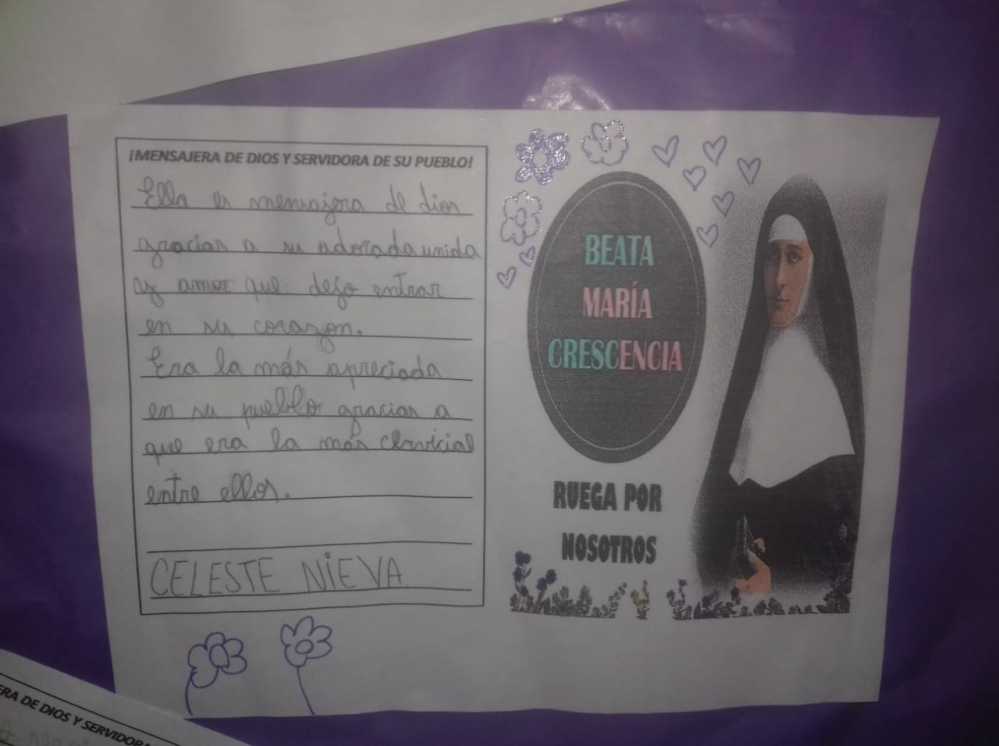 ¡MENSAJERA DE DIOS Y SERVIDORA DE SU PUEBLO!
Ella es mensajera de dios
gracias a su adorada unida
y amor que dejo entrar
en su corazon.
Era la más apreciada
en su pueblo gracias a
que era la más
entre ellos.
CELESTE NIEVA
BEATA
MARÍA
CRESCENCIA
RUEGA POR
NOSOTROS
ERA DE DIOS Y SERVIDORA